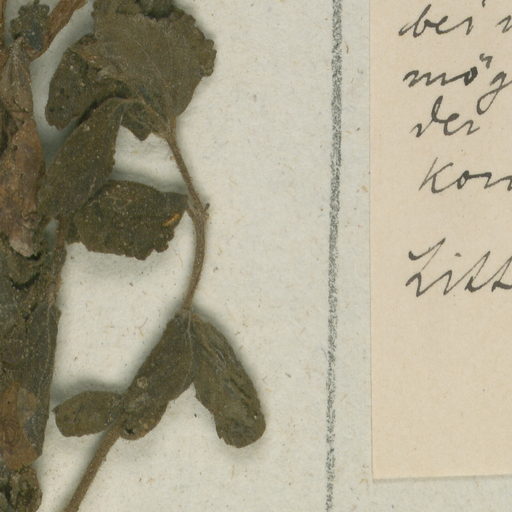 bei
mög
der
Kor
Litt